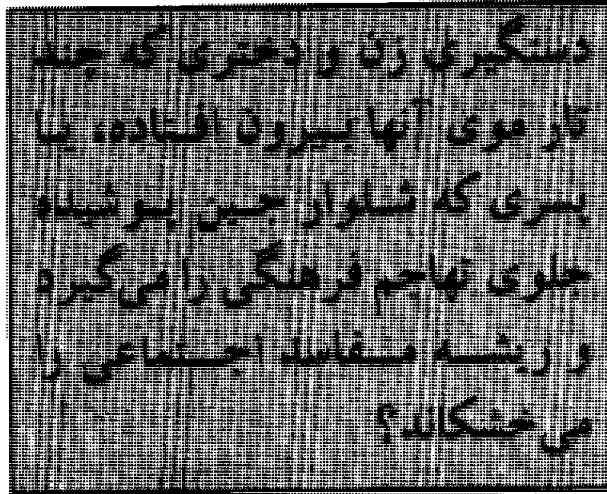 دستگیری زن و دختری که چند
تار موی آنها بیرون افتاده، یا
پسری که شلوار جین پوشیده
جلوی تهاجم فرهنگی را می‌گیرد
و ریشه مفاسد اجتماعی را
می‌خشکاند؟